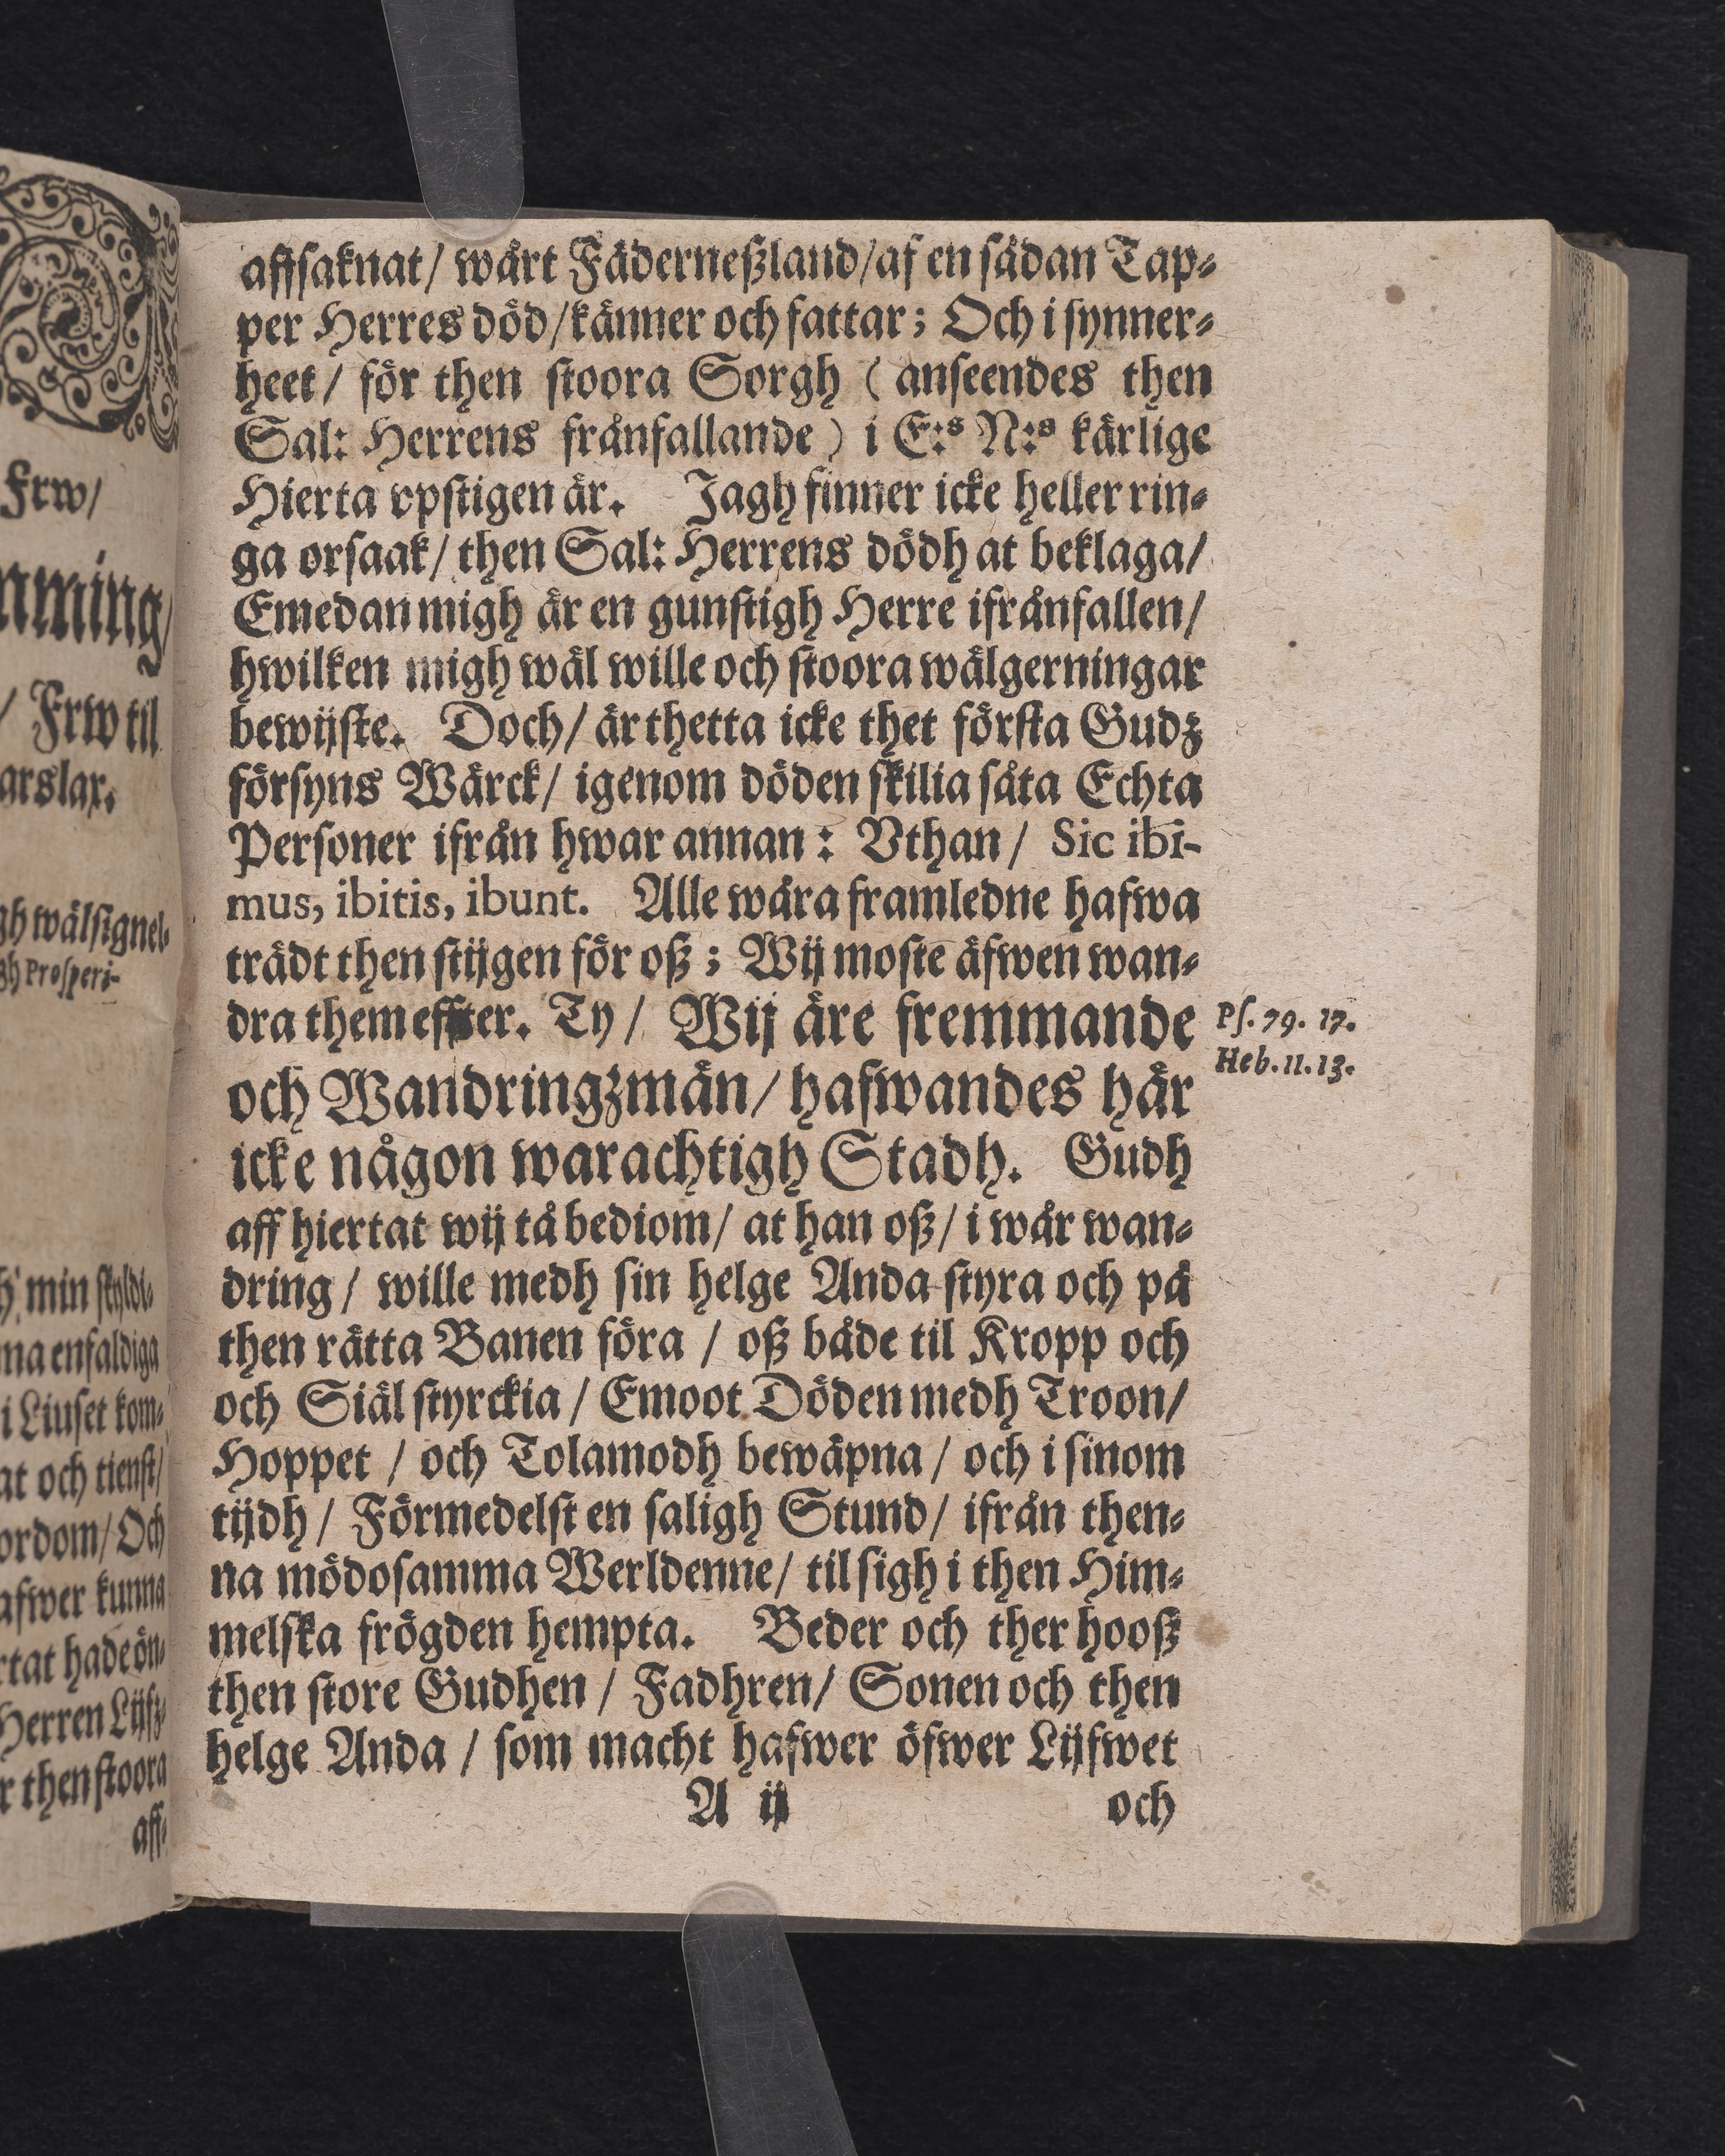 Frw/
nming/
/ Frw til
arslax.
gh wälsignel-
gh Prosperi-
h min skyldi-
ma enfaldiga
i Liuset kom-
at och tienst/
ordom/ Och
afwer kunna
rtat hade ön-
Herren Lijfz-
r then stoora
aff-
affsaknat/ wårt Fäderneßland/ af en sådan Tap-
per Herres död/ känner och fattar; Och i synner-
heet/ för then stoora Sorgh (anseendes then
Sal: Herrens frånfallande) i E:s N:s kärlige
Hierta vpstigen är. Jagh finner icke heller rin-
ga orsaak/ then Sal: Herrens dödh at beklaga/
Emedan migh är en gunstigh Herre ifrånfallen/
hwilken migh wäl wille och stoora wälgerningar
bewijste. Doch/ är thetta icke thet första Gudz
försyns Wärck/ igenom döden skilia såta Echta
Personer ifrån hwar annan: Vthan/ Sic ibi-
mus, ibitis, ibunt. Alle wåra framledne hafwa
trädt then stijgen för oß; Wij moste äfwen wan-
dra them effter. Ty/ Wij äre fremmande
och Wandringzmän/ hafwandes här
icke någon warachtigh Stadh. Gudh
aff hiertat wij tå bediom/ at han oß/ i wår wan-
dring/ wille medh sin helge Anda styra och på
then rätta Banen föra / oß både til Kropp och
och Siäl styrckia / Emoot Döden medh Troon/
Hoppet / och Tolamodh bewäpna / och i sinom
tijdh / Förmedelst en saligh Stund/ ifrån then-
na mödosamma Werldenne/ til sigh i then Him-
melska frögden hempta. Beder och ther hooß
then store Gudhen / Fadhren/ Sonen och then
helge Anda / som macht hafwer öfwer Lijfwet
A ij och
Ps. 79. 17.
Heb. 11. 13.